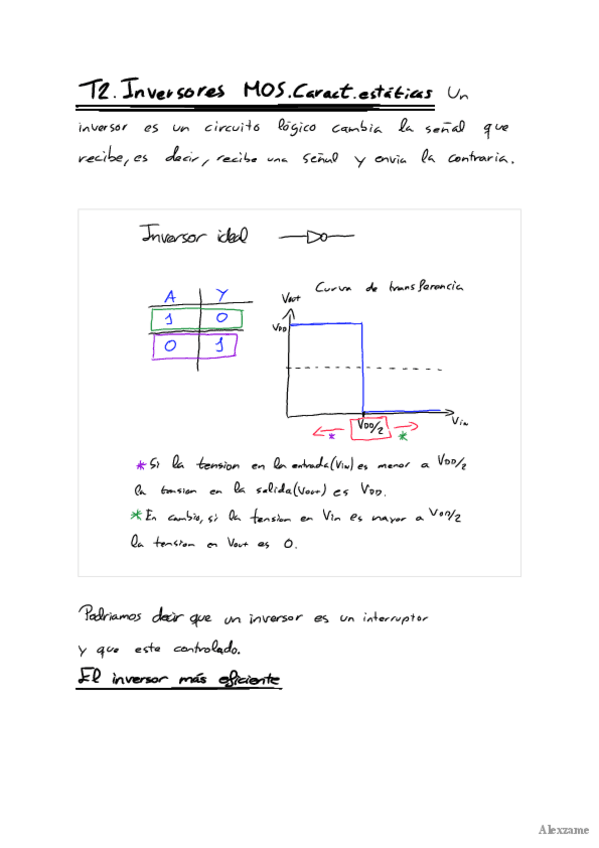 T2. Inversores MOS. Caract. estáticas Un
inversor es un circuito lógico cambia la señal que
recibe, es decir, recibe una señal y envia la contraria.
Inversor ideal
A Y
1 0
0 1
Curva de transferencia
Vout
VDD
VDD/2
Vin
* *
* Si la tension en la entrada (Vin) es menor a VDD/2
la tension en la salida (Vout) es VDD.
* En cambio, si la tension en Vin es mayor a VDD/2
la tension en Vout es 0.
Podriamos decir que un inversor es un interruptor
y que este controlado.
El inversor más eficiente
Alexzame